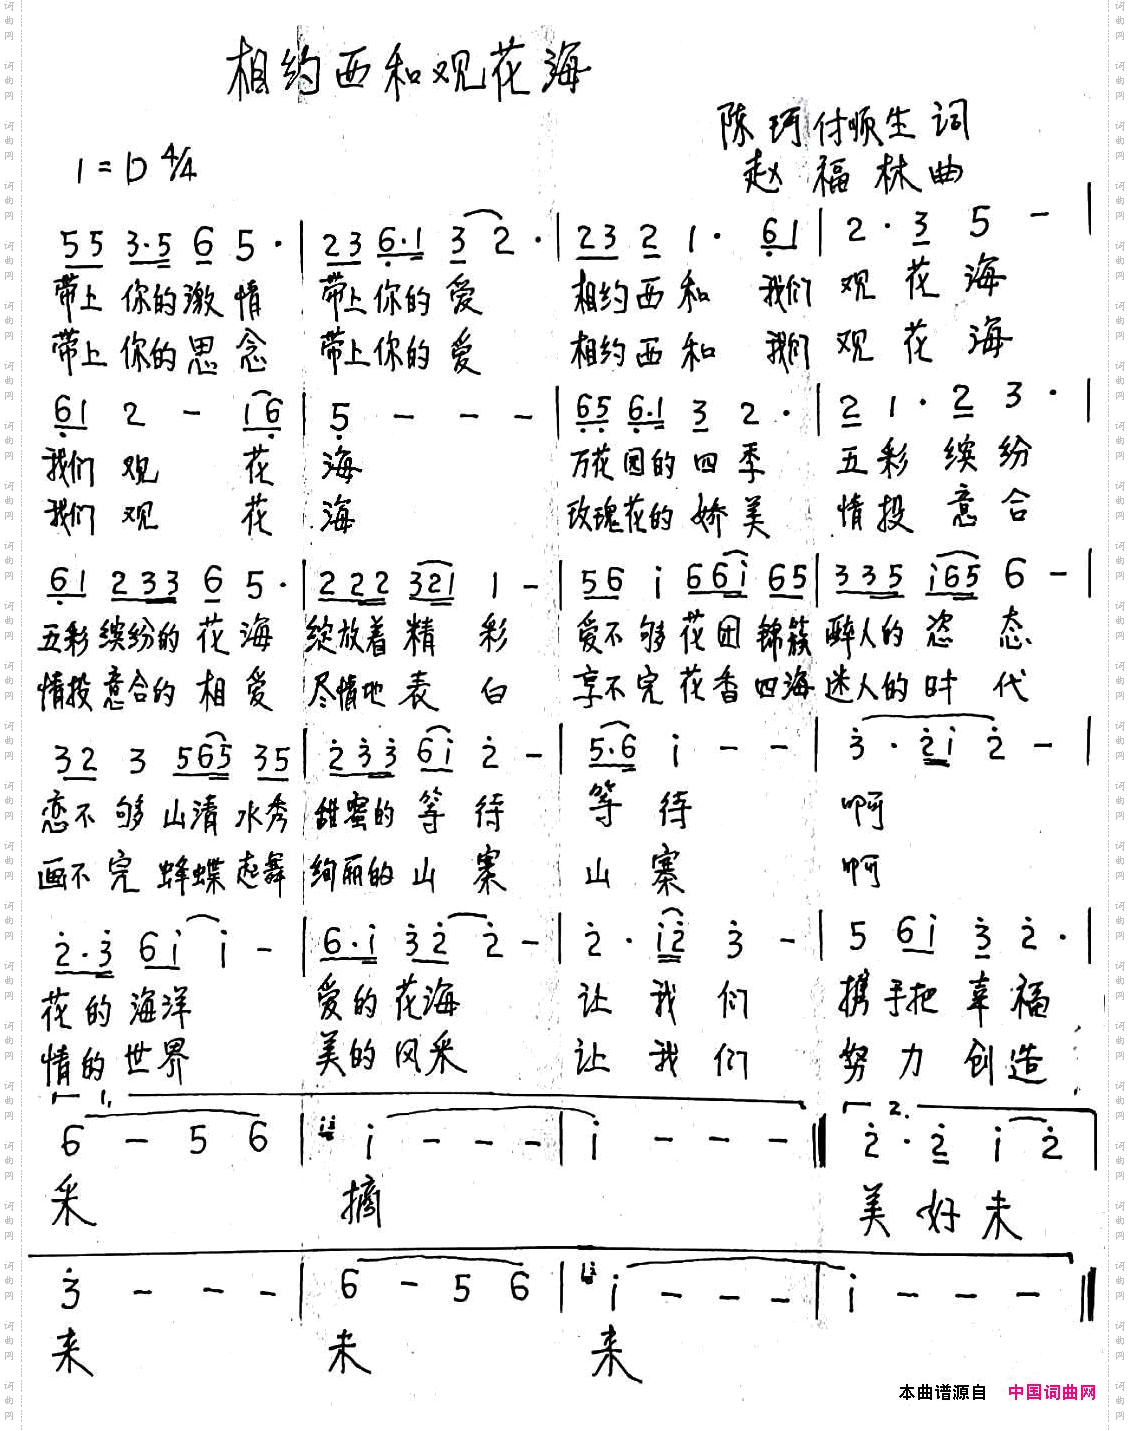 相约西和观花海
陈珂付顺生词
1=D 4/4
赵福林曲
55 3·5 6 5· | 23 6·1 3 2· | 23 2 1· 61 | 2·3 5 - |
带上你的激情 带上你的爱 相约西和 我们观花海
带上你的思念 带上你的爱 相约西和 我们观花海
61 2 - i6 | 5 - - - | 65 6·1 3 2· | 2 1· 2 3· |
我们观花海 万花园的四季 五彩缤纷
我们观花海 玫瑰花的娇美 情投意合
61 233 6 5· | 222 321 1 - | 56 i 66i 65 | 335 i65 6 - |
五彩缤纷的花海 绽放着精彩 爱不够花团锦簇 醉人的恣态
情投意合的相爱 尽情地表白 享不完花香四海 迷人的时代
32 3 565 35 | 233 6i 2 - | 5·6 i - - | 3·2i 2 - |
恋不够山清水秀 甜蜜的等待 等待 啊
画不完蜂蝶起舞 绚丽的山寨 山寨 啊
2·3 6i i - | 6·i 32 2 - | 2·i2 3 - | 5 6i 3 2· |
花的海洋 爱的花海 让我们 携手把幸福
情的世界 美的风采 让我们 努力创造
1. 2.
6 - 5 6 | i - - - | i - - - || 2·2 i 2 |
采 摘 美好未
3 - - - | 6 - 5 6 | i - - - | i - - - ||
来 未 来
本曲谱源自 中国词曲网